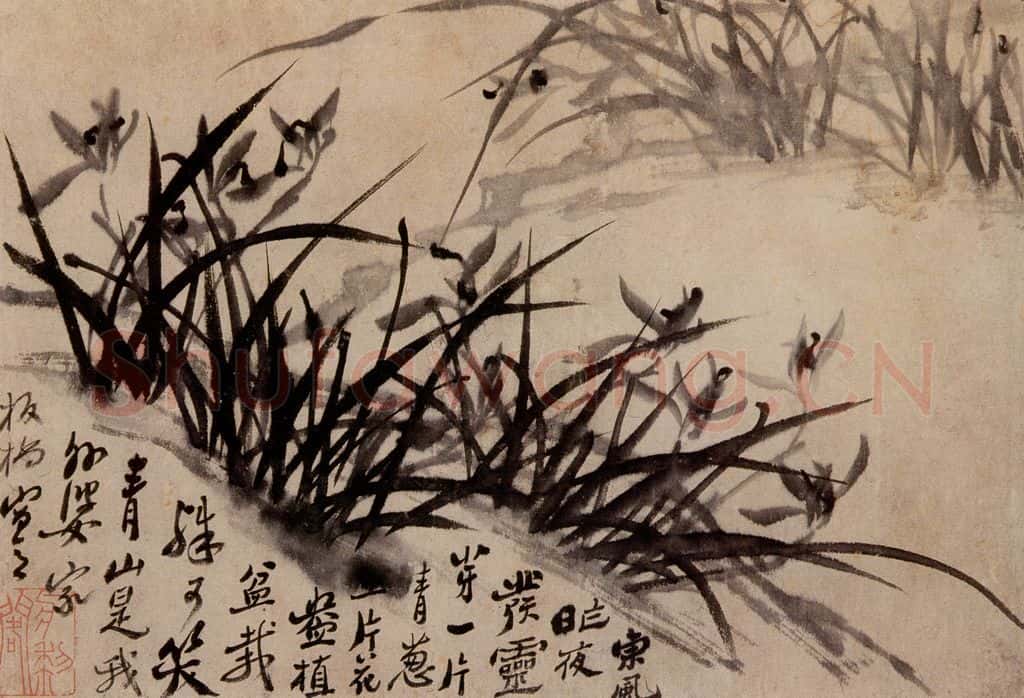 東風
昨夜
發靈
芽一片
青葱
一片花
盡植
盆栽
殊可笑
青山是我
外婆家
板橋寫之
Shufawang.CN